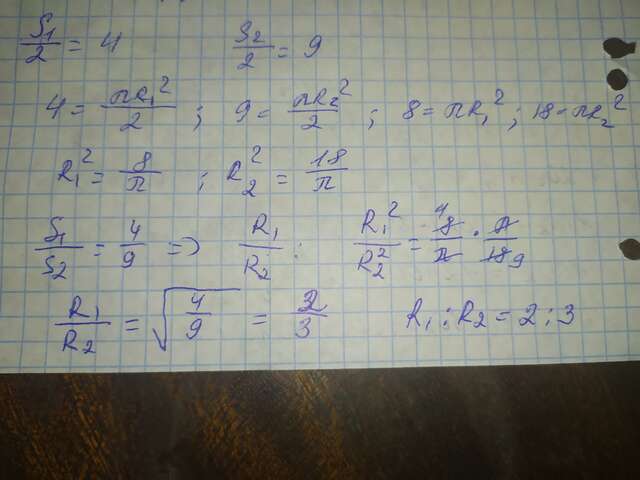 S₁/2 = 4 S₂/2 = 9
4 = πR₁²/2 ; 9 = πR₂²/2 ; 8 = πR₁² ; 18 = πR₂²
R₁² = 8/π ; R₂² = 18/π
S₁/S₂ = 4/9 => R₁/R₂ : R₁²/R₂² = ⁴8/π · π/18₉
R₁/R₂ = √(4/9) = 2/3 R₁ : R₂ = 2 : 3